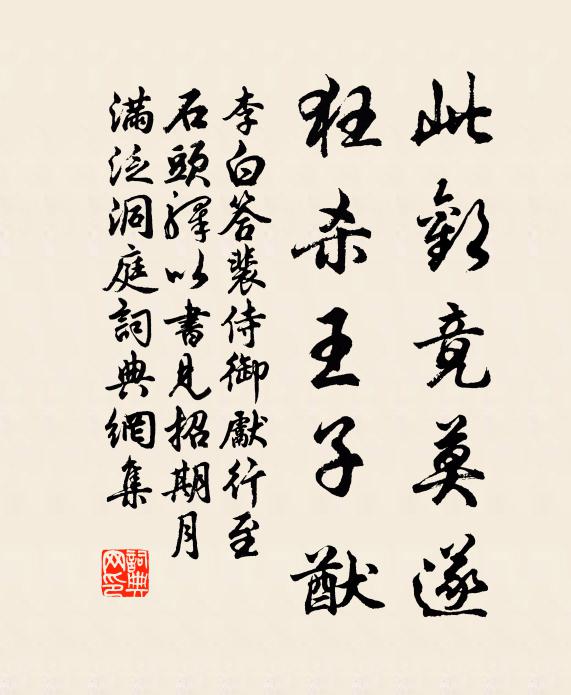 此歡竟莫遂
狂杀王子猷
李白答裴侍御獻行至
石頭驛以書見招期月
滿泛洞庭詞典網集
詞典网印